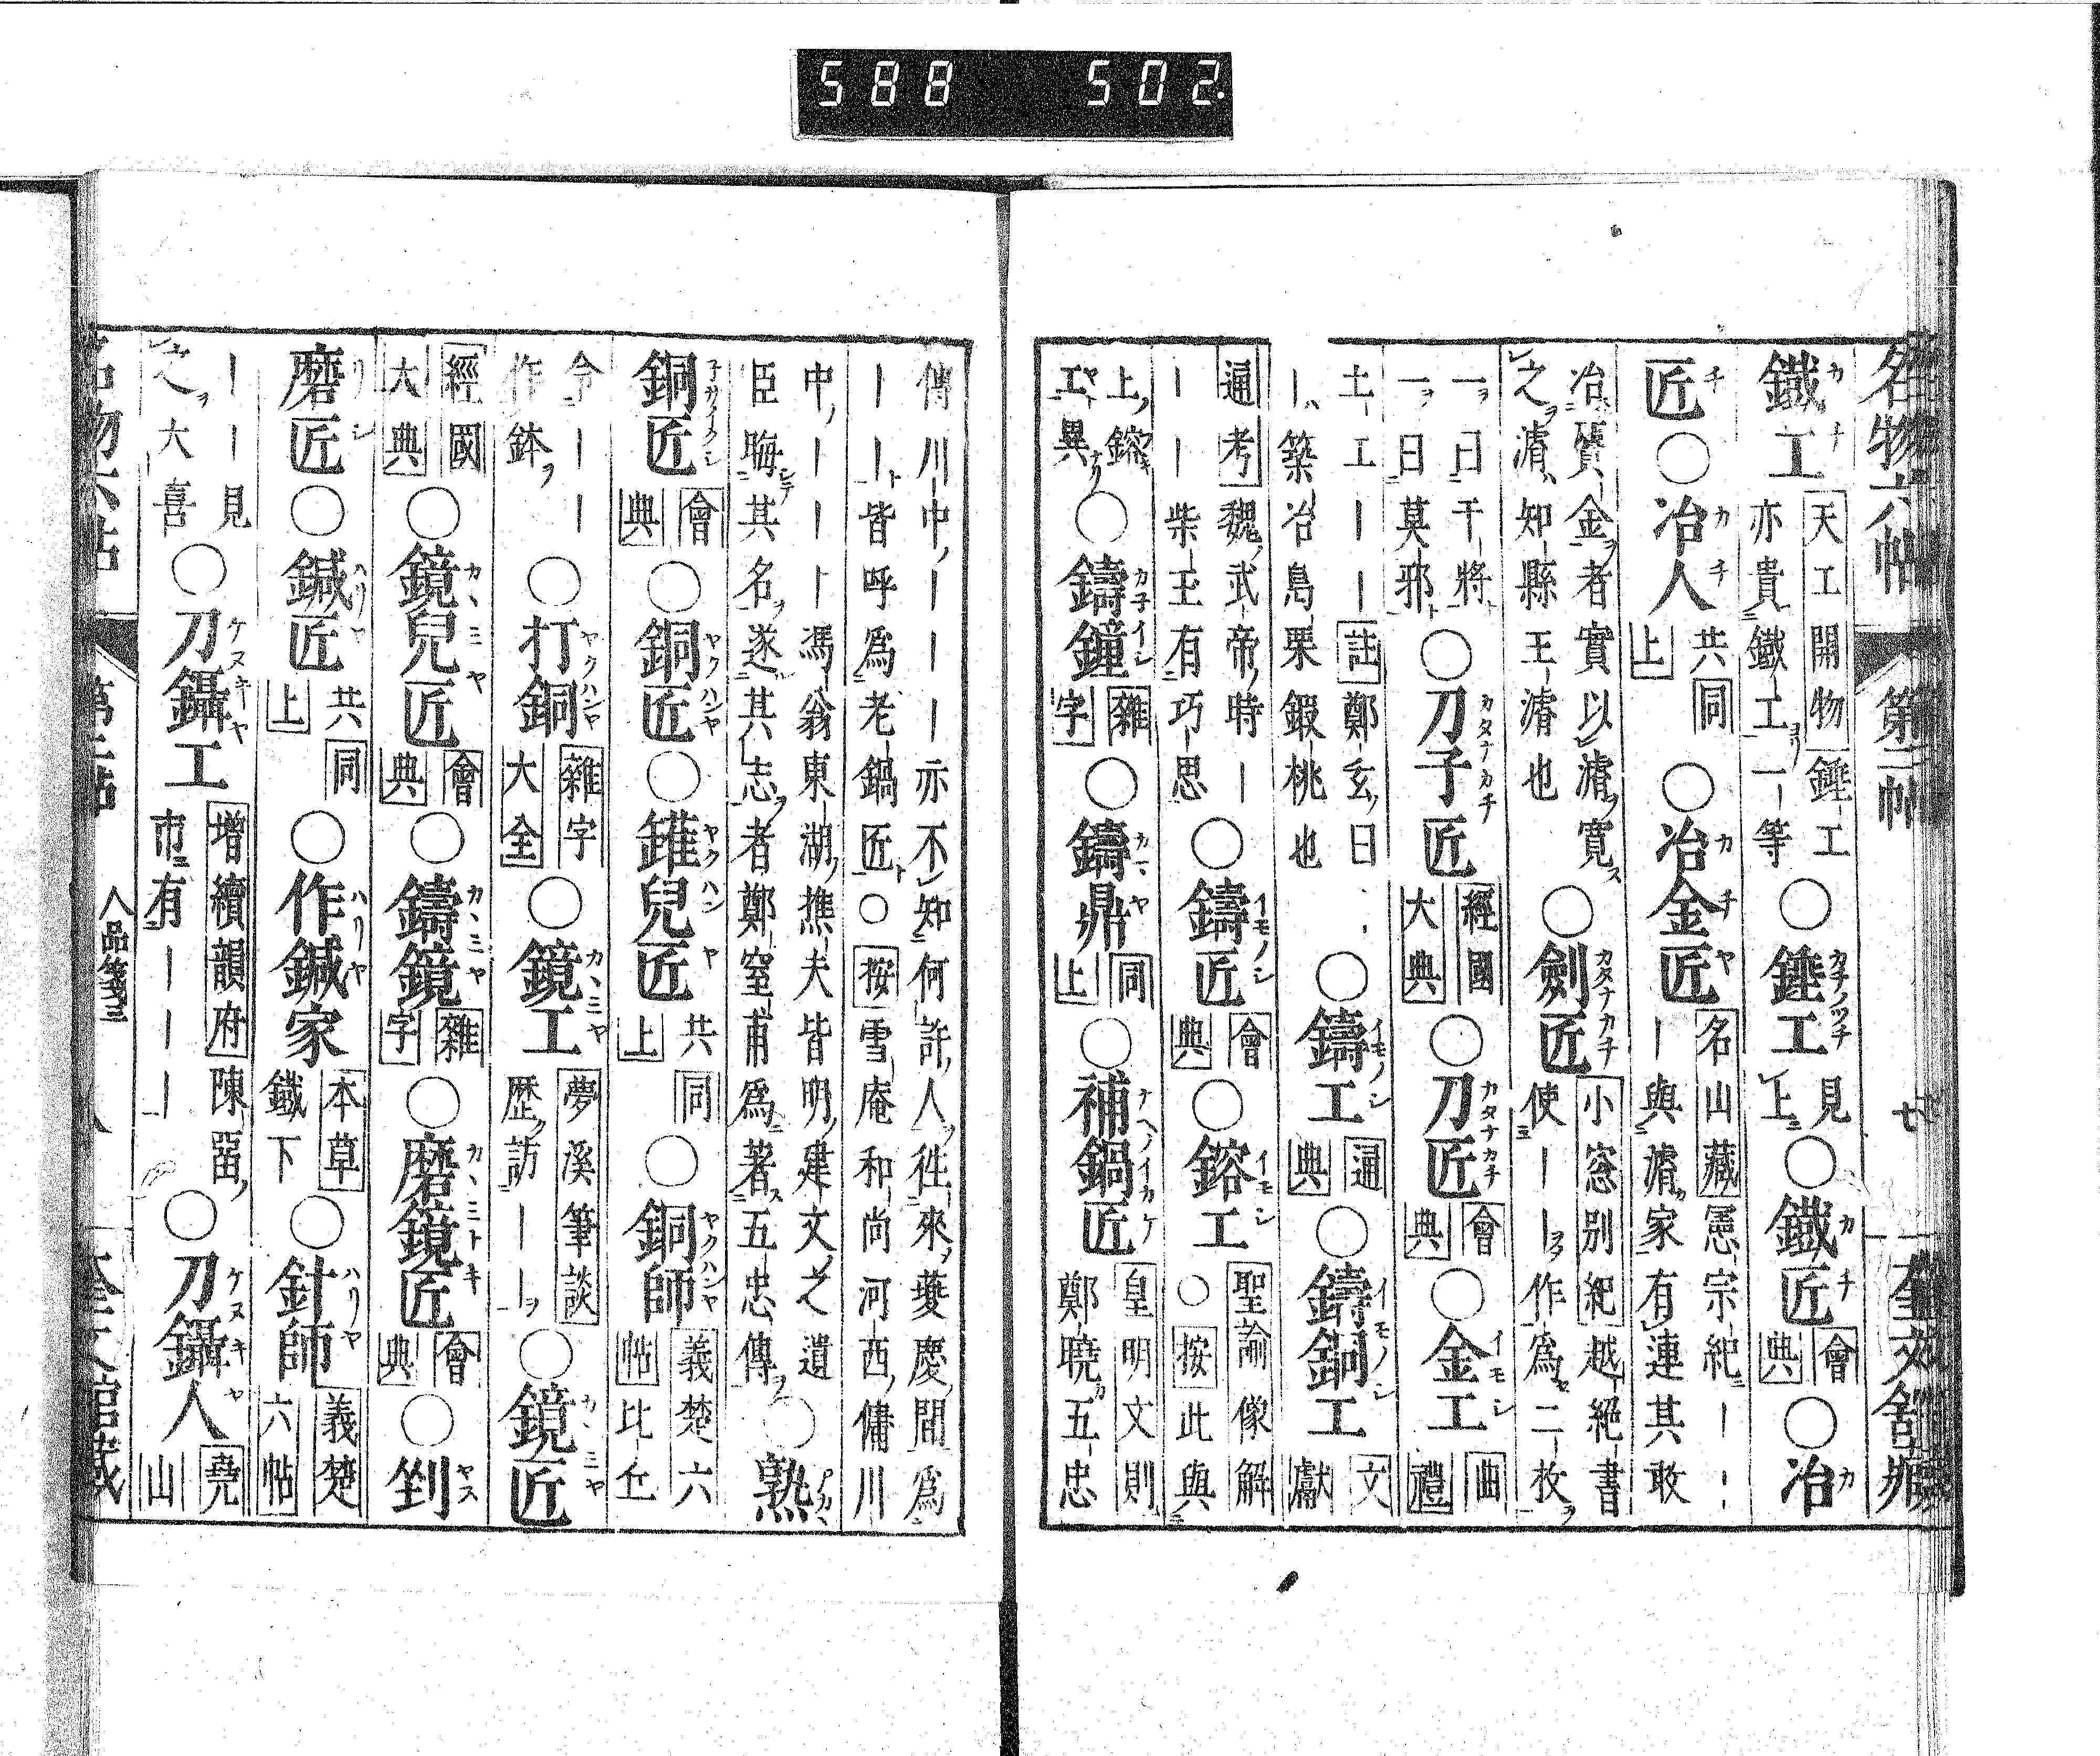 588 502.
名物六帖 第二帖 七 奎文館藏
鐵工 天工開物 錘工亦貴鐵工一等 ○錘工 見上 ○鐵匠 會典 ○冶
匠 ○冶人 共同上 ○冶金匠 名山藏 憲宗紀――與濬家有連其敢
冶 金者實以濬寬之濬知縣王濬也 ○劍匠 小窓別紀 越絕書使――作為二枚
一曰干將一曰莫邪 ○刀子匠 經國大典 ○刀匠 會典 ○金工 曲禮
土工――― 註 鄭玄曰―築冶鳧栗鍛桃也 ○鑄工 通典 ○鑄銅工 文獻
通考 魏武帝時―――柴玉有巧思 ○鑄匠 會典 ○鎔工 聖諭像解 ○按此與
上鎔工異 ○鑄鐘 雜字 ○鑄鼎 同上 ○補鍋匠 皇明文則 鄭曉五忠
傳川中―――亦不知何許人往來夔慶間為
―――皆呼為老鍋匠○按雪庵和尚河西傭川
中―――馮翁東湖樵夫皆明建文之遺
臣晦其名遂其志者鄭窒甫為著五忠傳 ○熟
銅匠 會典 ○銅匠 ○錐兒匠 共同上 ○銅師 義楚六帖 比丘
令―――作鉢 ○打銅 雜字大全 ○鏡工 夢溪筆談 歷訪―― ○鏡匠
經國大典 ○鏡兒匠 會典 ○鑄鏡 雜字 ○磨鏡匠 會典 ○剉
磨匠 ○鍼匠 共同上 ○作鍼家 本草 鐵下 ○針師 義楚六帖
○刀鑷工 增續韻府 陳留市有―――
――見之大喜 ○刀鑷人 堯山
名物六帖 第二帖 人品箋三 八 奎文館藏